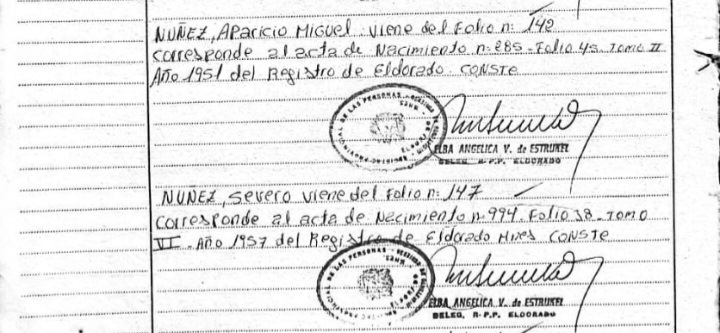 NUÑEZ, Aparicio Miguel. viene del Folio n: 142
corresponde al acta de Nacimiento n: 285 - Folio 45 - Tomo II
Año 1951 del Registro de Eldorado. CONSTE
PROVINCIAL DE LAS PERSONAS
ELBA ANGELICA V. de ESTRUKEL
DELEG. R.P.P. ELDORADO
NUÑEZ, Severo viene del Folio n: 147
corresponde al acta de Nacimiento n: 994 Folio 38 - TOMO
VI - Año 1957 del Registro de Eldorado Mnes CONSTE
PROVINCIAL DE LAS PERSONAS
ELBA ANGELICA V. de ESTRUKEL
DELEG. R.P.P. ELDORADO